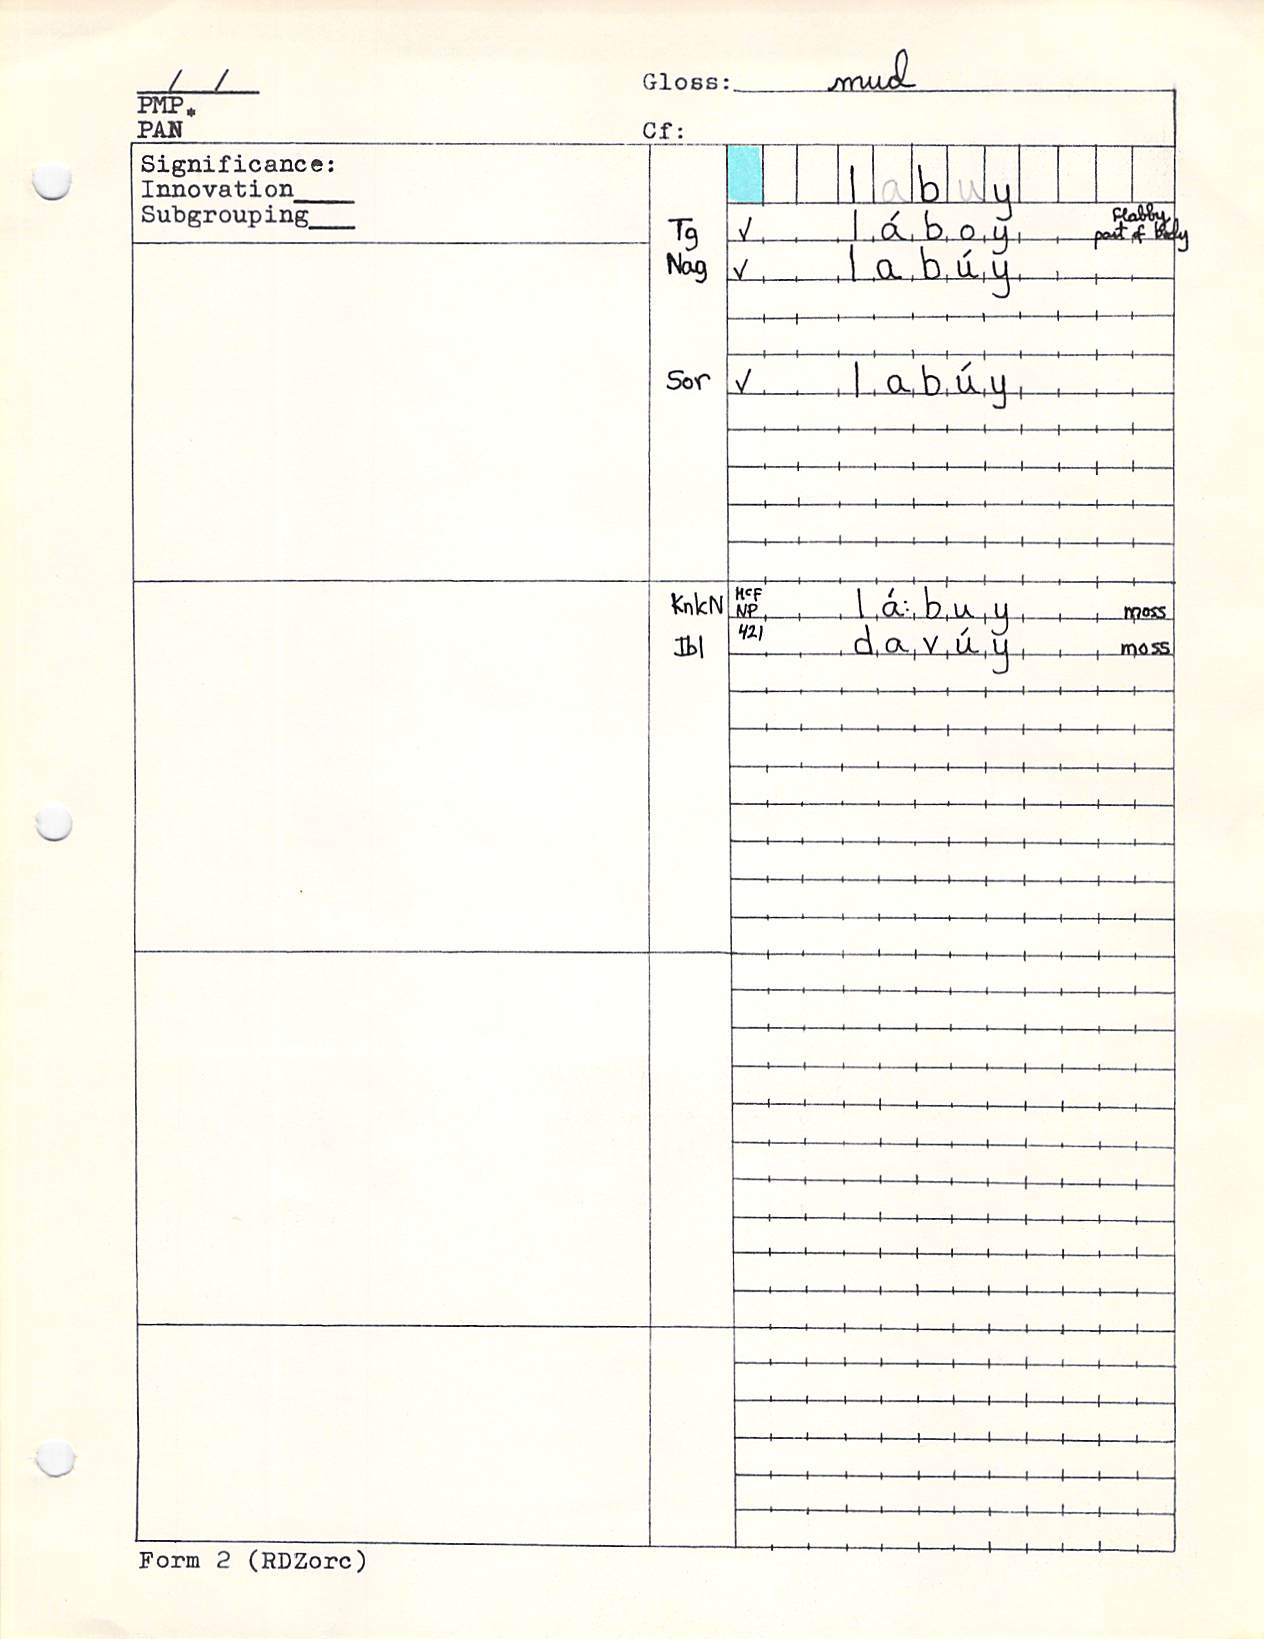 / /
Gloss: mud
PMP *
PAN
Cf:
Significance:
Innovation____
Subgrouping____
l a b u y
Tg ✓ l á b o y flabby part of body
Nag ✓ l a b ú y
Sor ✓ l a b ú y
KnkN McF NP l á: b u y moss
Ibl 421 d a v ú y moss
Form 2 (RDZorc)